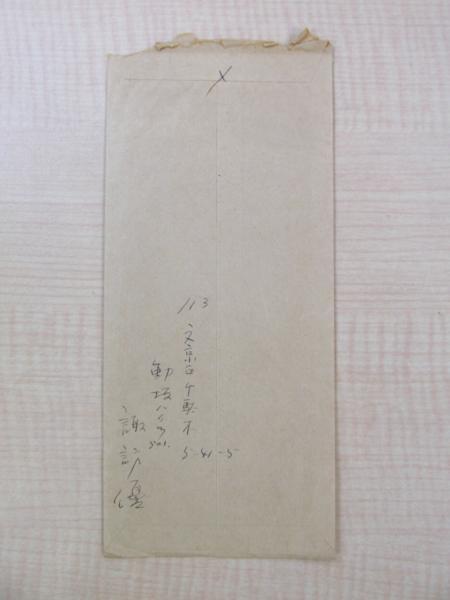 〆
113
文京区千駄木
5-41-5
動坂ハイツ
501
諏訪優